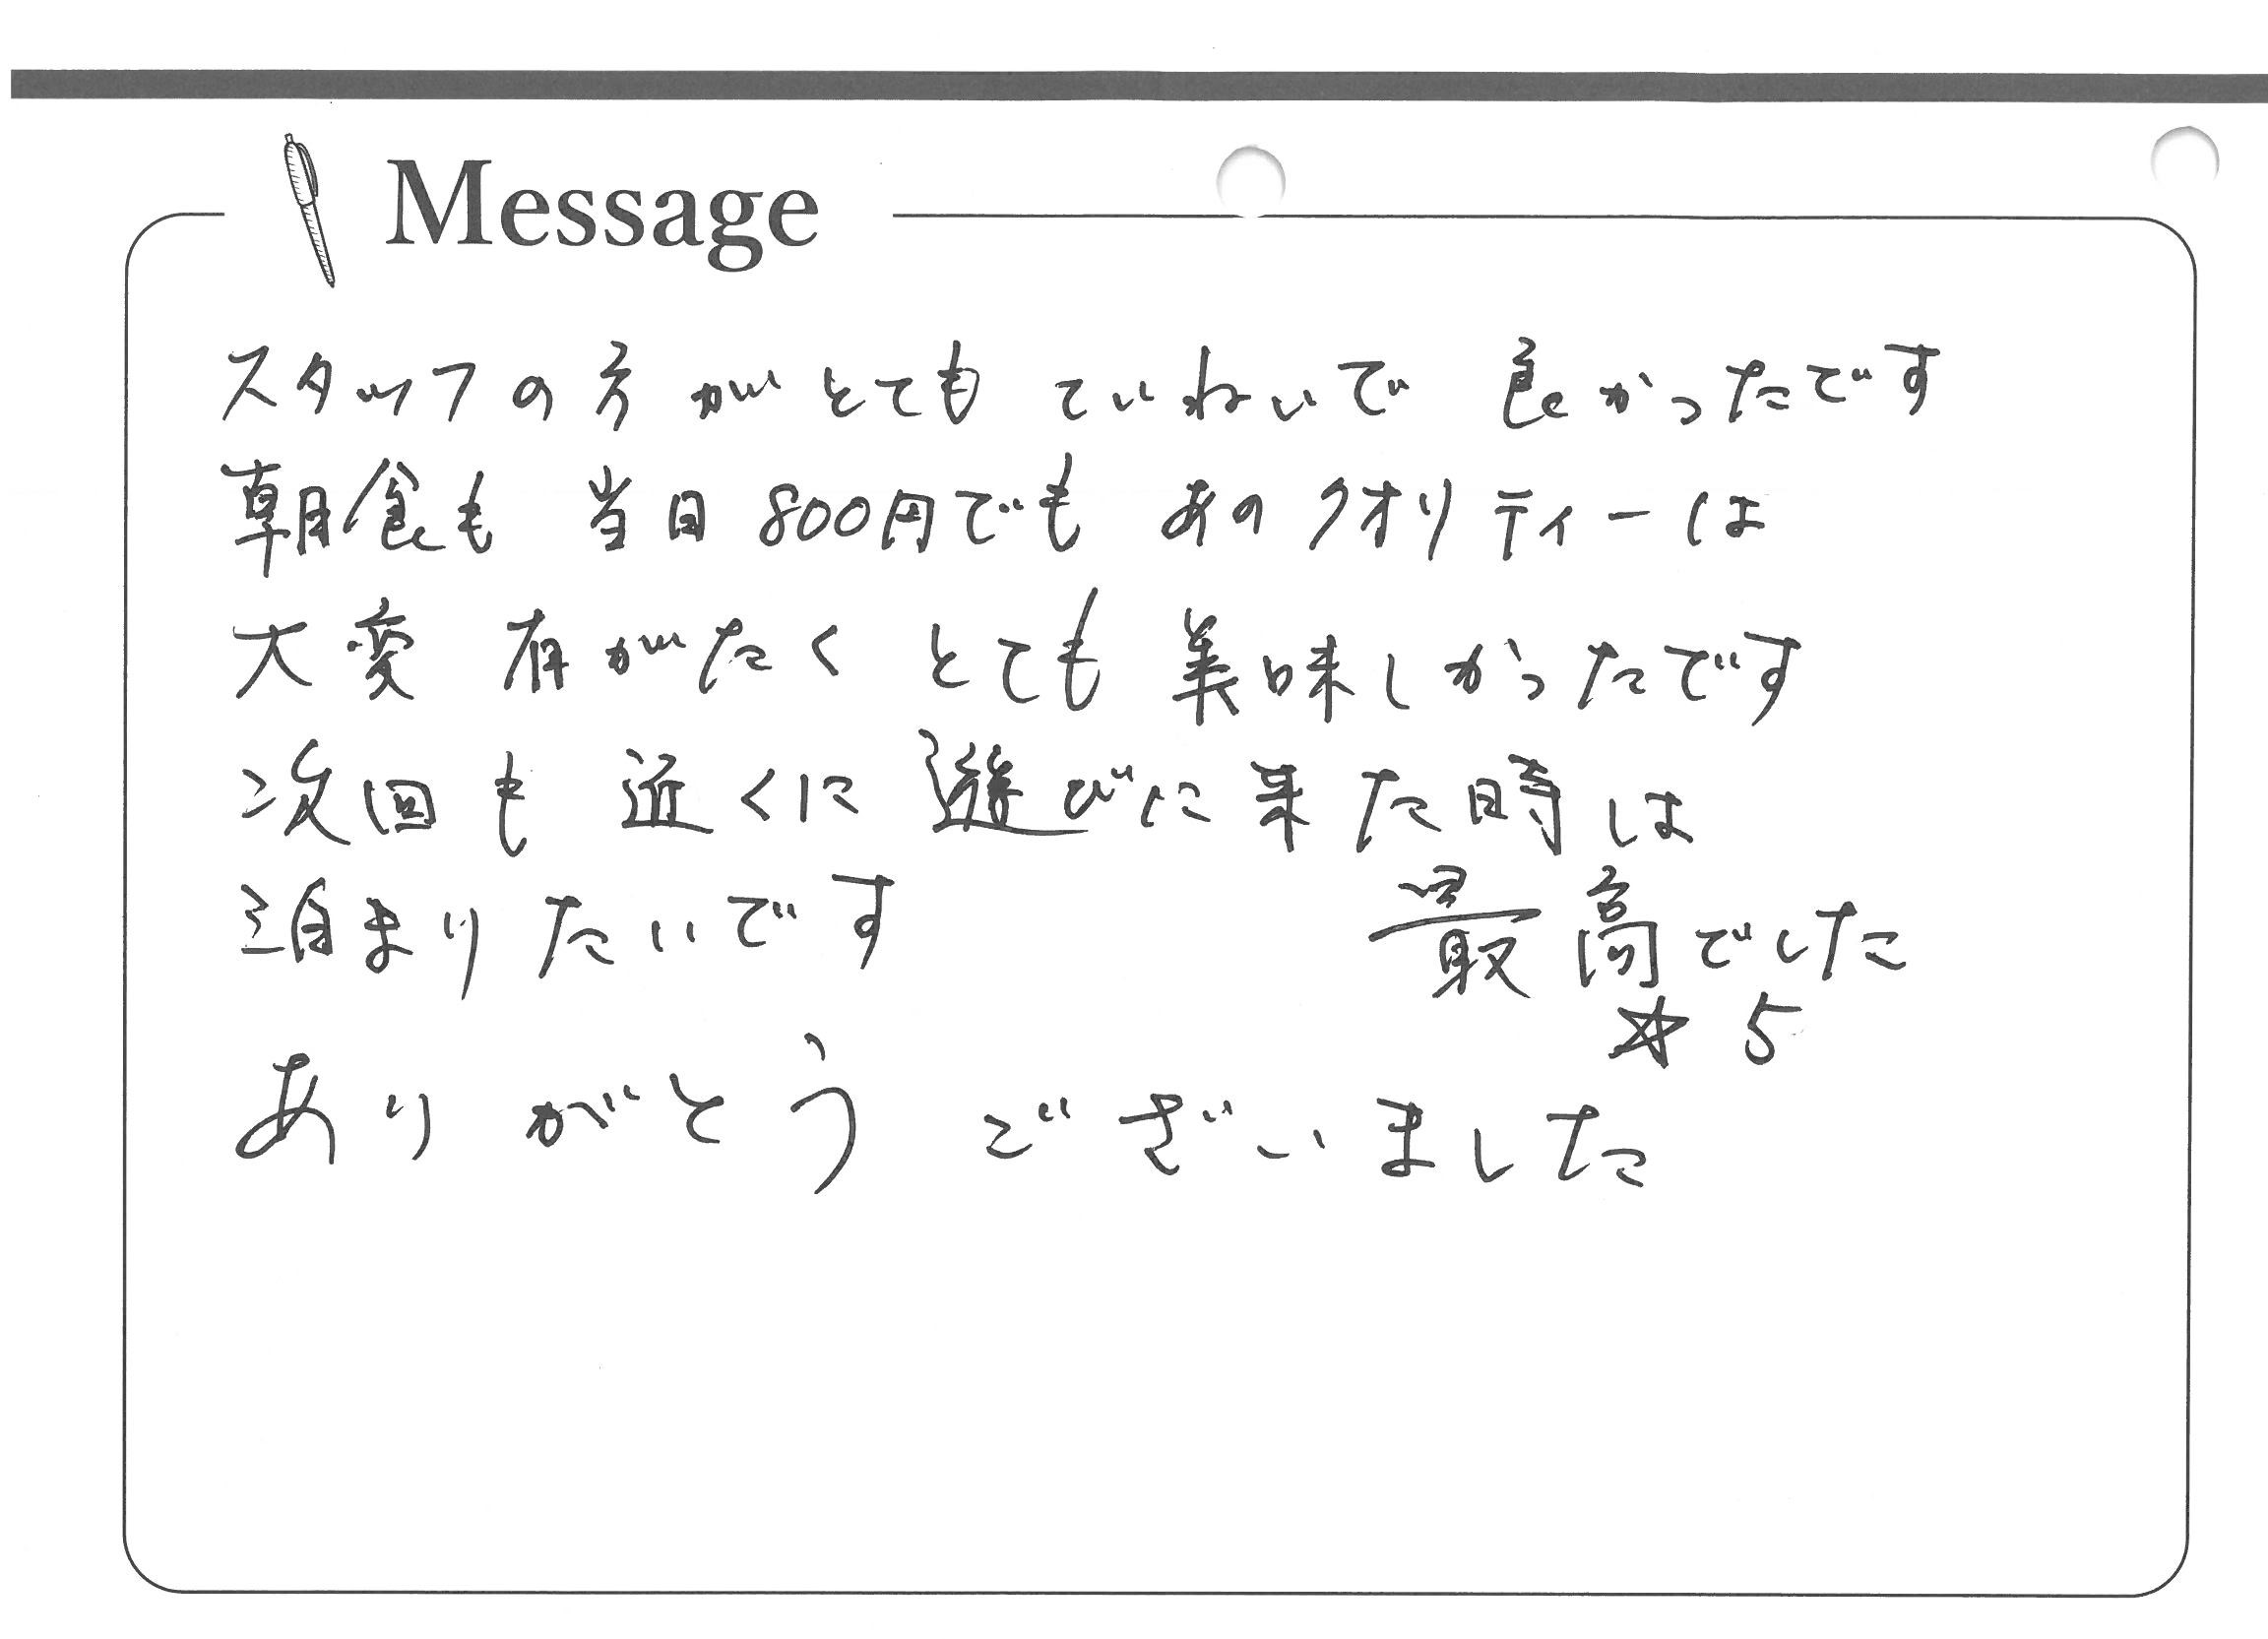 Message
スタッフの方がとてもていねいで 良かったです
朝食も 当日 800円でも あの クオリティーは
大変 有がたく とても 美味しかったです
次回も 近くに 遊びに来た時は
泊まりたいです
最高でした
☆ 5
ありがとう ございました